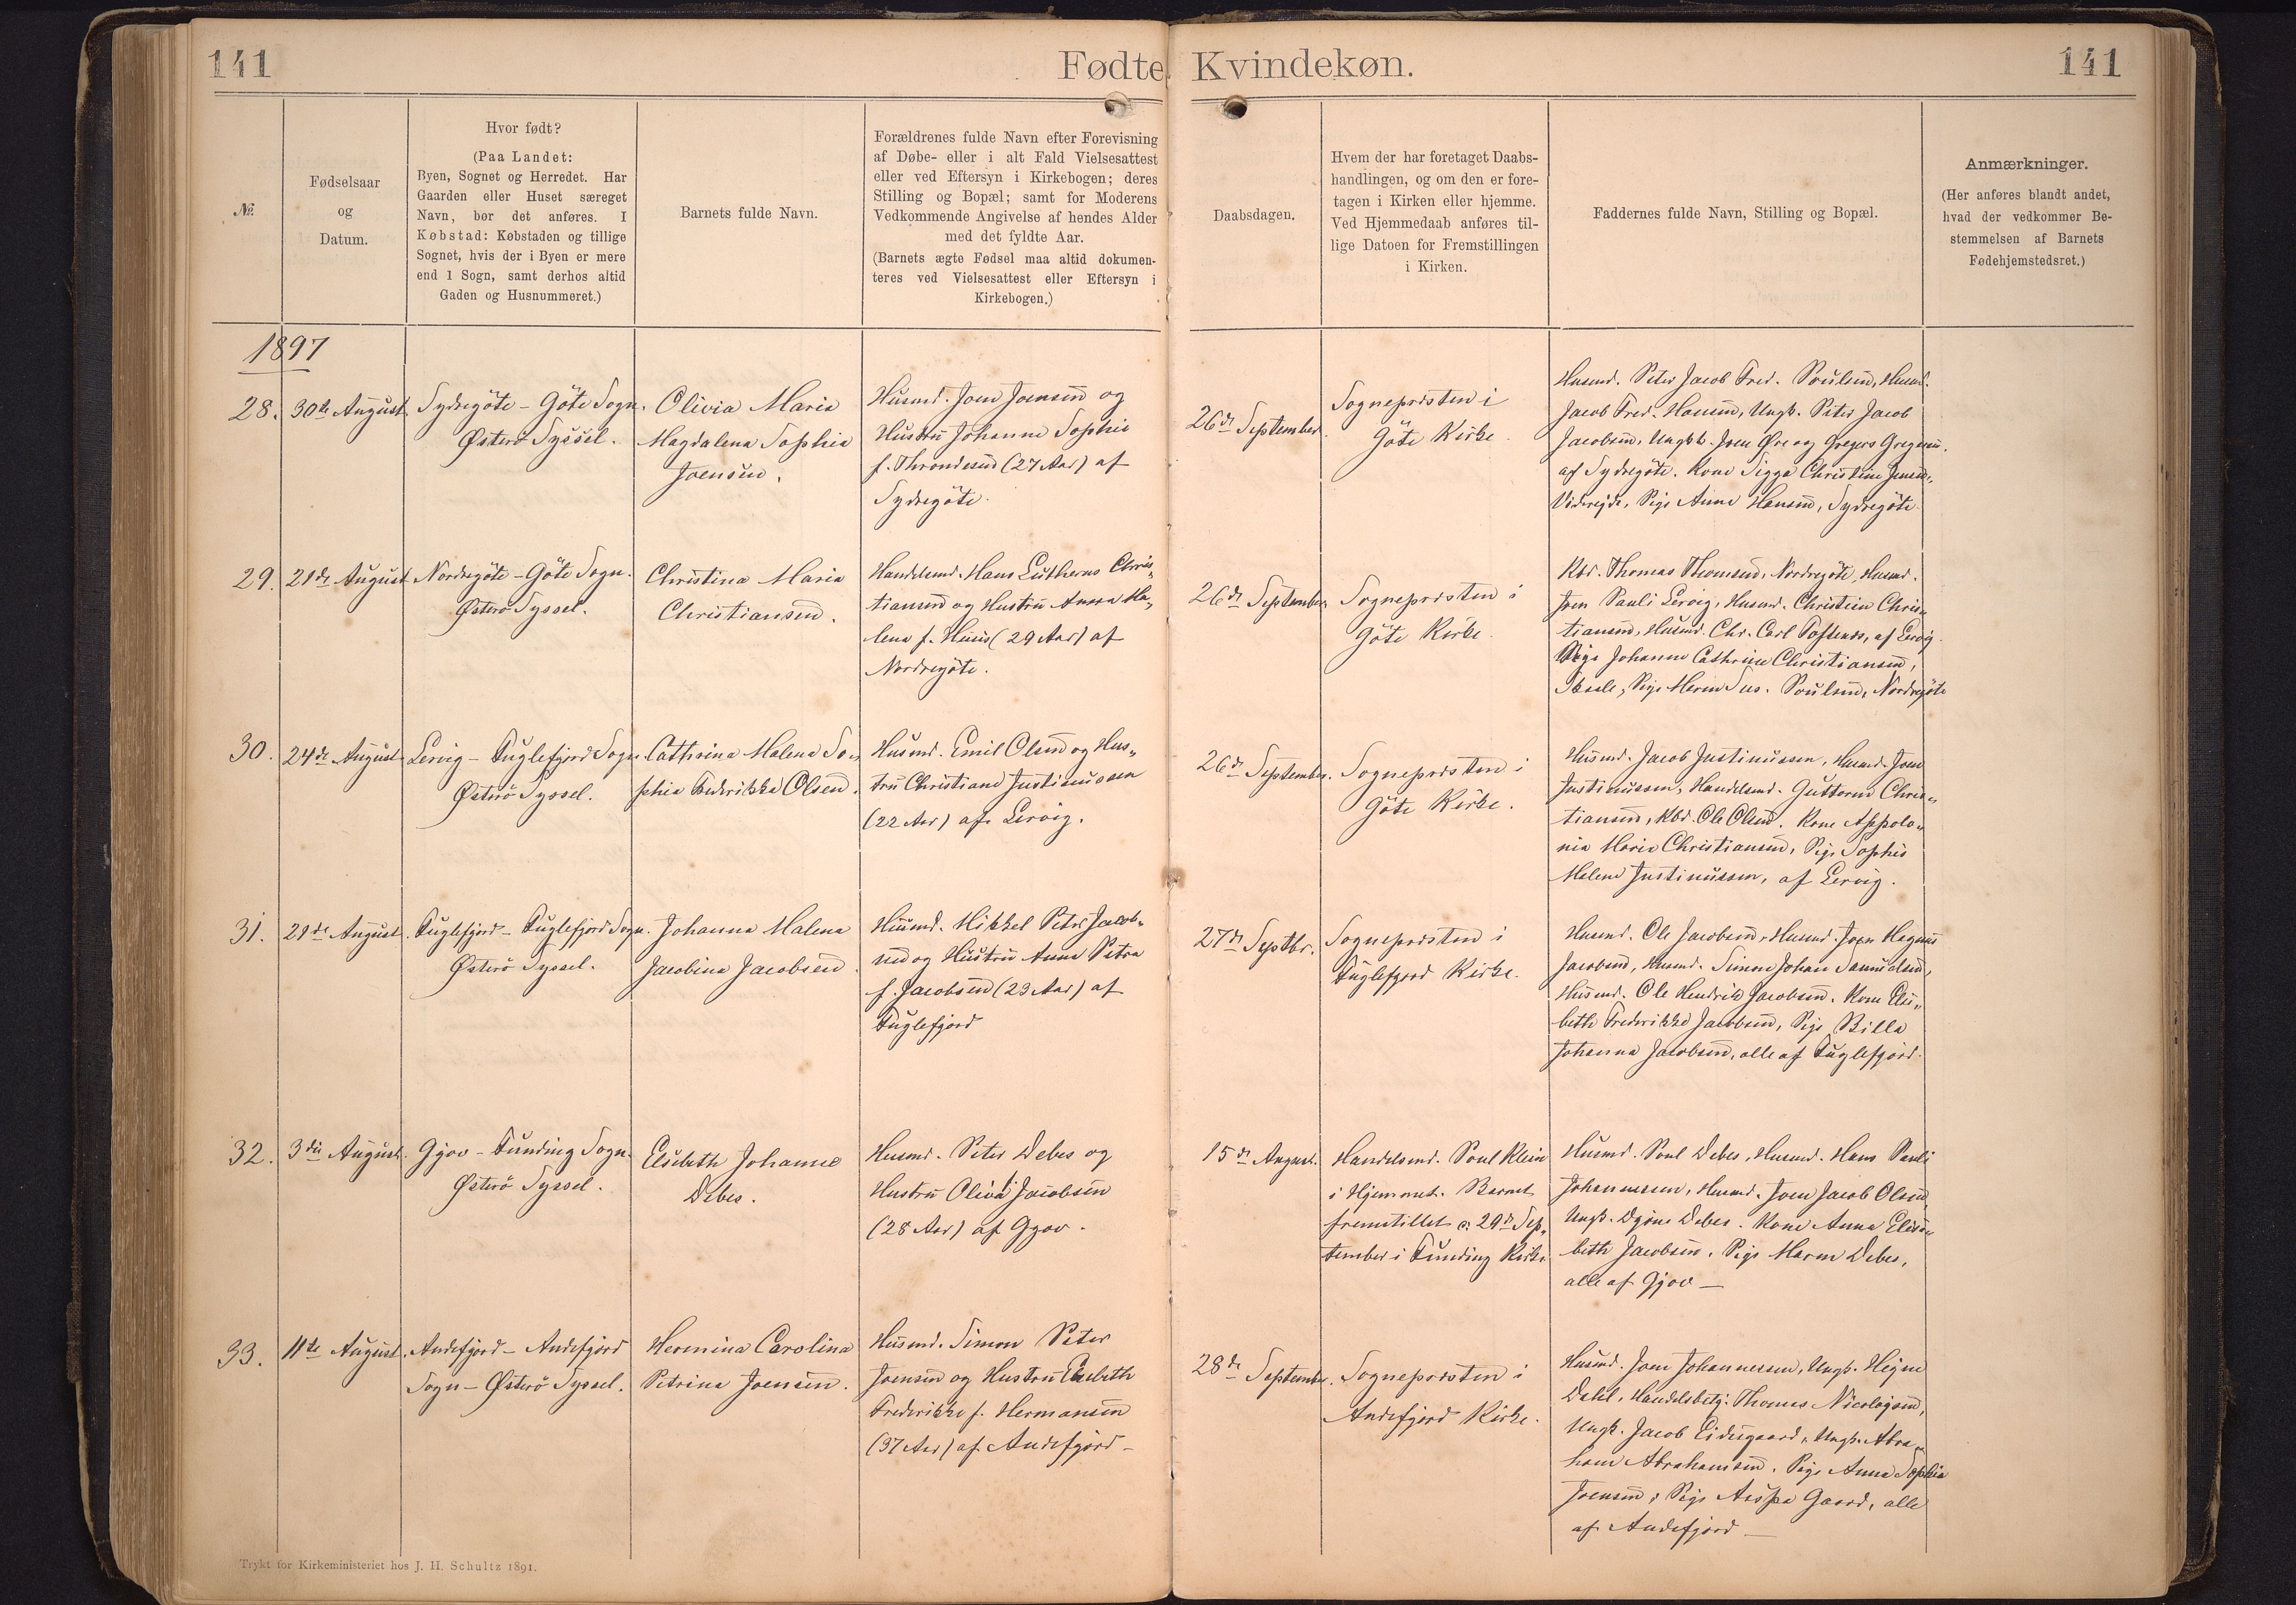 141
Fødte Kvindekøn.
141
№
Fødselsaar
og
Datum.
Hvor født?
(Paa Landet:
Byen, Sognet og Herredet. Har
Gaarden eller Huset særeget
Navn, bør det anføres. I
Købstad: Købstaden og tillige
Sognet, hvis der i Byen er mere
end 1 Sogn, samt derhos altid
Gaden og Husnummeret.)
Barnets fulde Navn.
Forældrenes fulde Navn efter Forevisning
af Døbe- eller i alt Fald Vielsesattest
eller ved Eftersyn i Kirkebogen; deres
Stilling og Bopæl; samt for Moderens
Vedkommende Angivelse af hendes Alder
med det fyldte Aar.
(Barnets ægte Fødsel maa altid dokumen-
teres ved Vielsesattest eller Eftersyn i
Kirkebogen.)
Daabsdagen.
Hvem der har foretaget Daabs-
handlingen, og om den er fore-
tagen i Kirken eller hjemme.
Ved Hjemmedaab anføres til-
lige Datoen for Fremstillingen
i Kirken.
Faddernes fulde Navn, Stilling og Bopæl.
Anmærkninger.
(Her anføres blandt andet,
hvad der vedkommer Be-
stemmelsen af Barnets
Fødehjemstedsret.)
1897
28.
30te August
Sydregöte - Göte Sogn.
Østerö Syssel.
Olivia Maria
Magdalena Sophia
Joensen.
Husmd. Joen Joensen og
Hustru Johanne Sophie
f. Throndesen (27 Aar) af
Sydregöte.
26de September.
Sognepræsten i
Göte Kirke.
Husmd. Peter Jacob Fred. Poulsen, Husmd.
Jacob Fred. Hansen, Ungk. Peter Jacob
Jacobsen, Ungkk. Joen Øre og Gregers Gregersen.
af Sydregöte. Kone Sigga Christine Jensen,
Viderejde, Pige Anne Hansen, Sydregöte.
29.
21de August
Nordregöte - Göte Sogn.
Østerö Syssel.
Christina Maria
Christiansen.
Handelsmd. Hans Lutherus Chris-
tiansen og Hustru Anna Ma-
lena f. Husis (29 Aar) af
Nordregöte.
26de September.
Sognepræsten i
Göte Kirke.
Kbd. Thomas Thomsen, Nordregöte, Husmd.
Joen Pauli Lervig, Husmd. Christian Chris-
tiansen, Husmd. Chr. Carl, af Lervig.
Pige Johanne Cathrine Christiansen,
Ibsale, Pige Maren Sus. Poulsen, Nordregöte
30.
24de August
Lervig - Fuglefjord Sogn.
Østerö Syssel.
Cathrina Malena So-
phia Frederikka Olsen.
Husmd. Emil Olsen og Hus-
tru Christiane Justinussen
(22 Aar) af Lervig.
26de September.
Sognepræsten i
Göte Kirke.
Husmd. Jacob Justinussen, Husmd. Joen
Justinussen, Handelsmd. Guttorm Chris-
tiansen, Kbd. Ole Olsen. Kone Appolo-
nia Maria Christiansen, Pige Sophie
Malene Justinussen, af Lervig.
31.
29de August.
Fuglefjord - Fuglefjord Sogn.
Østerö Syssel.
Johanna Malena
Jacobina Jacobsen.
Husmd. Mikkel Peter Jacob-
sen og Hustru Anne Petra
f. Jacobsen (23 Aar) af
Fuglefjord
27de Septbr.
Sognepræsten i
Fuglefjord Kirke.
Husmd. Ole Jacobsen, Husmd. Joen Magnus
Jacobsen, Husmd. Simon Johan Samuelsen,
Husmd. Ole Hendrik Jacobsen. Kone Elis-
beth Frederikke Jacobsen, Pige Billa
Johanna Jacobsen, alle af Fuglefjord.
32.
3die August.
Gjov - Funding Sogn.
Østerö Syssel.
Elsebeth Johanne
Debes.
Husmd. Peter Debes og
Hustru Olivia Jacobsen
(28 Aar) af Gjov.
15de August.
Handelsmd. Poul Klein
i Hjemmet. Barnet
fremstillet d. 29de Sep-
tember i Funding Kirke
Husmd. Poul Debes, Husmd. Hans Pauli
Johannesen, Husmd. Joen Jacob Olsen,
Ungk. Debes. Kone Anna Elisa-
beth Jacobsen, Pige Maren Debes,
alle af Gjov —
33.
11te August.
Andefjord - Andefjord
Sogn - Østerö Syssel.
Hermina Carolina
Petrina Joensen.
Husmd. Simon Peter
Joensen og Hustru Elsebeth
Frederikke f. Hermansen
(37 Aar) af Andefjord -
28de September.
Sognepræsten i
Andefjord Kirke.
Husmd. Joen Johannessen, Ungk. Hejne
Dahl, Handelsbetj. Thomas Nicolajsen,
Ungk. Jacob Eidesgaard, Ungk. Abra-
ham Abrahamsen. Pige Anna Sophia
Joensen, Pige Gaard, alle
af Andefjord —
Trykt for Kirkeministeriet hos J. H. Schultz 1891.